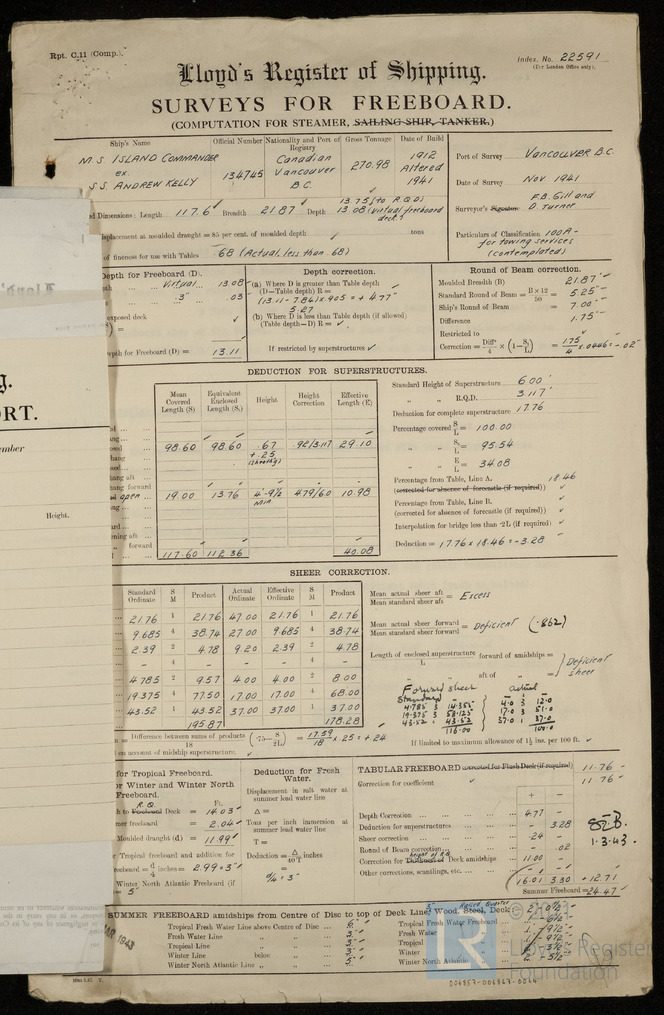 Rpt. C.11 (Comp.).
Index. No. 22591
(For London Office only).
Lloyd's Register of Shipping.
SURVEYS FOR FREEBOARD.
(COMPUTATION FOR STEAMER, SAILING SHIP, TANKER.)
Ship's Name
Official Number
Nationality and Port of Registry
Gross Tonnage
Date of Build
M.S. ISLAND COMMANDER
ex.
S.S. ANDREW KELLY
134745
Canadian
Vancouver
B.C.
270.98
1912
Altered
1941
Port of Survey Vancouver B.C.
Date of Survey Nov 1941
Surveyor's Signature F.B. Gill and
D. Turner
Particulars of Classification 100A-
for towing services
(contemplated)
ed Dimensions: Length 117.6 Breadth 21.87 Depth 13.75 (to R.Q.D)
13.08 (virtual freeboard deck)
isplacement at moulded draught = 85 per cent. of moulded depth tons
of fineness for use with Tables .68 (Actual less than 68)
Depth for Freeboard (D).
Virtual 13.08
.3" .03
exposed deck
epth for Freeboard (D) = 13.11
Depth correction.
(a) Where D is greater than Table depth
(D—Table depth) R =
(13.11-7.84) x .905 = +4.77
5.27
(b) Where D is less than Table depth (if allowed)
(Table depth—D) R =
If restricted by superstructures
Round of Beam correction.
Moulded Breadth (B) 21.87
Standard Round of Beam = B×12/50 = 5.25
Ship's Round of Beam = 7.00
Difference 1.75
Restricted to
Correction = Diff/4 × (1—S₁/L) = 1.75/4 x .0446 = -.02
DEDUCTION FOR SUPERSTRUCTURES.
Mean Covered Length (S)
Equivalent Enclosed Length (S₁)
Height
Height Correction
Effective Length (E)
98.60 98.60 .67 .92/3.117 29.10
+.25
(sheathg)
hang aft
hang forward
open 19.00 13.76 4'-9½ 4.79/6.0 10.98
min
forward
117.60 112.36 40.08
Standard Height of Superstructure 6.00'
" " R.Q.D. 3.117'
Deduction for complete superstructure 17.76
Percentage covered S/L = 100.00
" " S₁/L = 95.54
" " E/L = 34.08
Percentage from Table, Line A. 18.46
(corrected for absence of forecastle (if required))
Percentage from Table, Line B.
(corrected for absence of forecastle (if required))
Interpolation for bridge less than .2L (if required)
Deduction = 17.76 x 18.46 = -3.28
SHEER CORRECTION.
Standard Ordinate
S M
Product
Actual Ordinate
Effective Ordinate
S M
Product
21.76 1 21.76 47.00 21.76 1 21.76
9.685 4 38.74 27.00 9.685 4 38.74
2.39 2 4.78 9.20 2.39 2 4.78
- 4 - - - 4 -
4.785 2 9.57 4.00 4.00 2 8.00
19.375 4 77.50 17.00 17.00 4 68.00
43.52 1 43.52 37.00 37.00 1 37.00
195.87 178.28
Mean actual sheer aft
Mean standard sheer aft = Excess
Mean actual sheer forward
Mean standard sheer forward = Deficient (.862)
Length of enclosed superstructure forward of amidships =
L
" " aft of " =
Deficient
sheer
Forward sheer
Standard actual
4.785 3 14.355 4.0 3 12.0
19.375 3 58.125 17.0 3 51.0
43.52 1 43.52 37.0 1 37.0
116.00 100.0
n = Difference between sums of products / 18 (.75—S/2L) = 17.59/18 x .25 = +.24
on account of midship superstructure.
If limited to maximum allowance of 1½ ins. per 100 ft.
for Tropical Freeboard.
or Winter and Winter North
Freeboard.
Ft.
R.Q.
h to Freeboard Deck = 14.03
mer freeboard = 2.04
Moulded draught (d) = 11.99
r Tropical freeboard and addition for
reeboard = d/4 inches = 2.99 = 3"
Winter North Atlantic Freeboard (if
= 5"
Deduction for Fresh Water.
Displacement in salt water at
summer load water line
Δ =
Tons per inch immersion at
summer load water line
T =
Deduction = Δ/40T inches
=
d/4 = 3"
TABULAR FREEBOARD corrected for Flush Deck (if required) 11.76
Correction for coefficient 11.76
+ -
Depth Correction 4.77
Deduction for superstructures 3.28
Sheer correction .24
Round of Beam correction .02
Correction for height of R.Q. Deck amidships 11.00
Other corrections, scantlings, etc.
16.01 3.30 +12.71
Summer Freeboard = 24.47
1.3.43.
SUMMER FREEBOARD amidships from Centre of Disc to top of Deck Line, Wood, Steel, Deck
Raised Quarter
Tropical Fresh Water Line above Centre of Disc
Fresh Water Line " "
Tropical Line " "
Winter Line below "
Winter North Atlantic Line " "
Tropical Fresh Water Freeboard
Fresh Water
Tropical
Winter
Winter North Atlantic
MAR 1943
g.
RT.
mber
Height.
© 2021
LR
Lloyd's Register
Foundation
006857-006867-0066